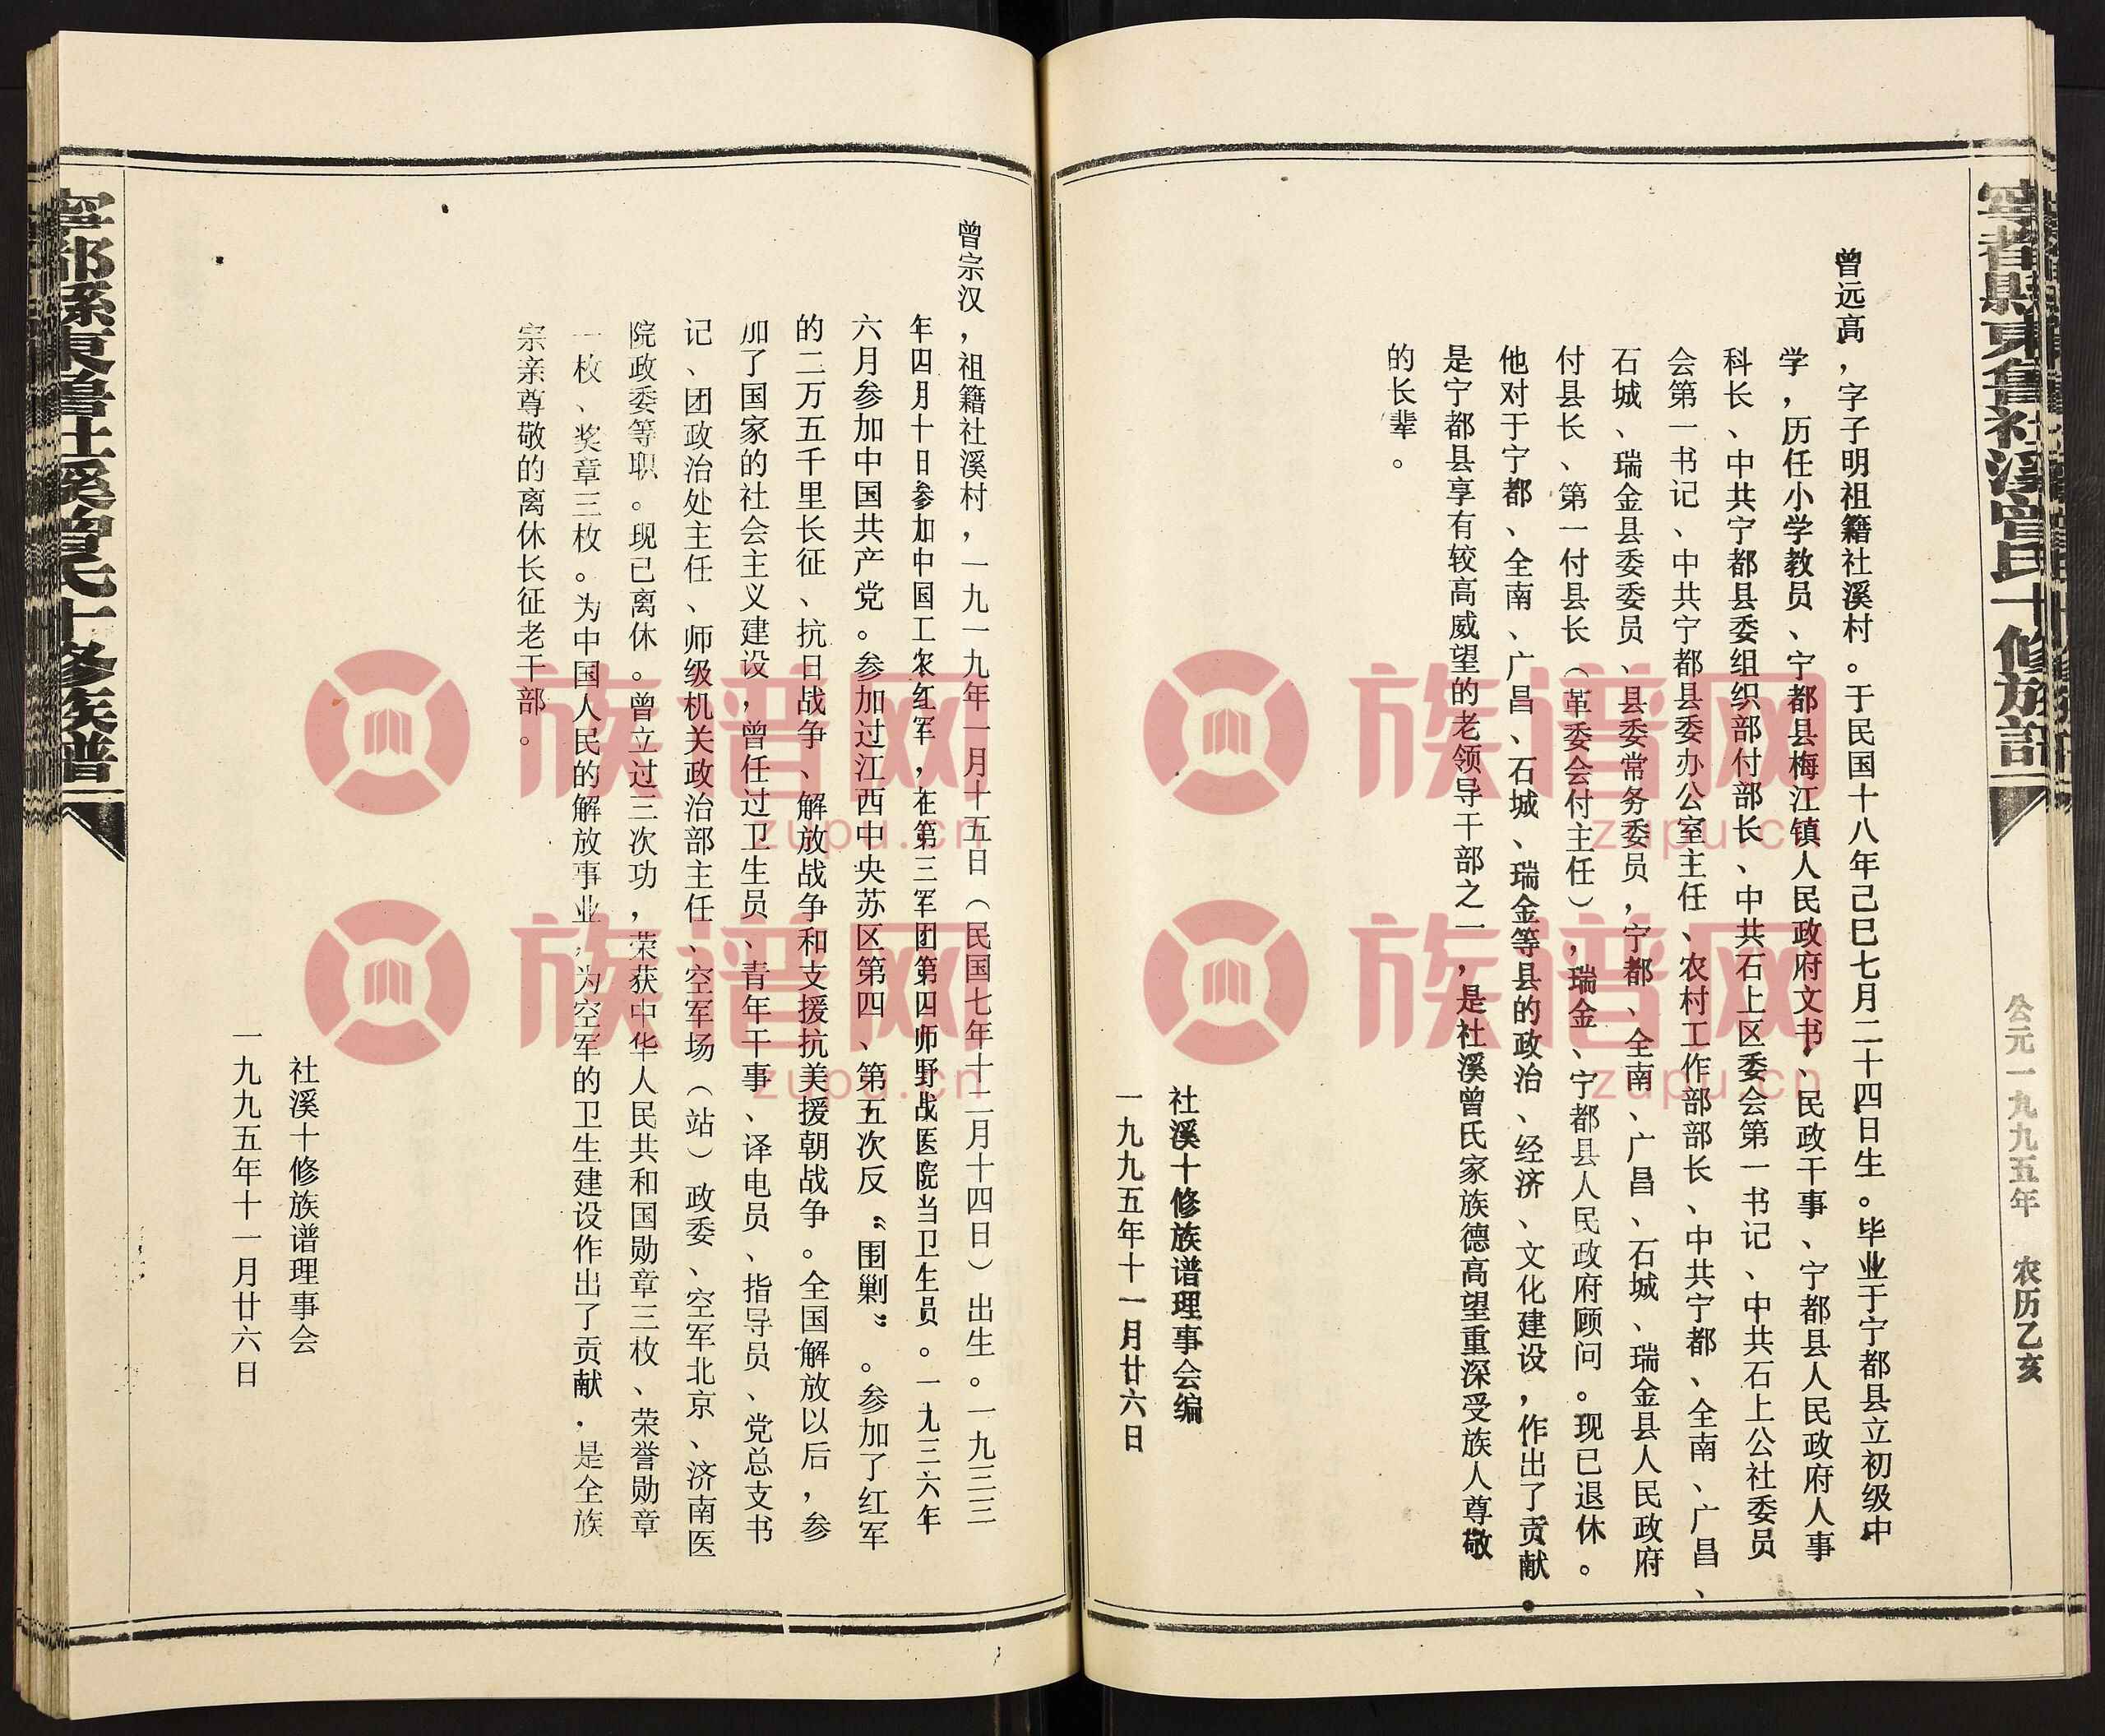 公元一九九五年 农历乙亥
曾远高，字子明祖籍社溪村。于民国十八年己巳七月二十四日生。毕业于宁都县立初级中
学，历任小学教员、宁都县梅江镇人民政府文书、民政干事、宁都县人民政府人事
科长、中共宁都县委组织部付部长、中共石上区委会第一书记、中共石上公社委员
会第一书记、中共宁都县委办公室主任、农村工作部部长、中共宁都、全南、广昌、
石城、瑞金县委委员、县委常务委员，宁都、全南、广昌、石城、瑞金县人民政府
付县长、第一付县长（革委会付主任），瑞金、宁都县人民政府顾问。现已退休。
他对于宁都、全南、广昌、石城、瑞金等县的政治、经济、文化建设，作出了贡献
是宁都县享有较高威望的老领导干部之一，是社溪曾氏家族德高望重深受族人尊敬
的长辈。
社溪十修族谱理事会编
一九九五年十一月廿六日
曾宗汉，祖籍社溪村，一九一九年一月十五日（民国七年十二月十四日）出生。一九三三
年四月十日参加中国工农红军，在第三军团第四师野战医院当卫生员。一九三六年
六月参加中国共产党。参加过江西中央苏区第四、第五次反“围剿”。参加了红军
的二万五千里长征、抗日战争、解放战争和支援抗美援朝战争。全国解放以后，参
加了国家的社会主义建设，曾任过卫生员、青年干事、译电员、指导员、党总支书
记、团政治处主任、师级机关政治部主任、空军场（站）政委、空军北京、济南医
院政委等职。现已离休。曾立过三次功，荣获中华人民共和国勋章三枚、荣誉勋章
一枚、奖章三枚。为中国人民的解放事业，为空军的卫生建设作出了贡献，是全族
宗亲尊敬的离休长征老干部。
社溪十修族谱理事会
一九九五年十一月廿六日
寧都縣東魯社溪曾氏十修族譜
族谱网
zupu.cn
族谱网
zupu.cn
族谱网
zupu.cn
族谱网
zupu.cn